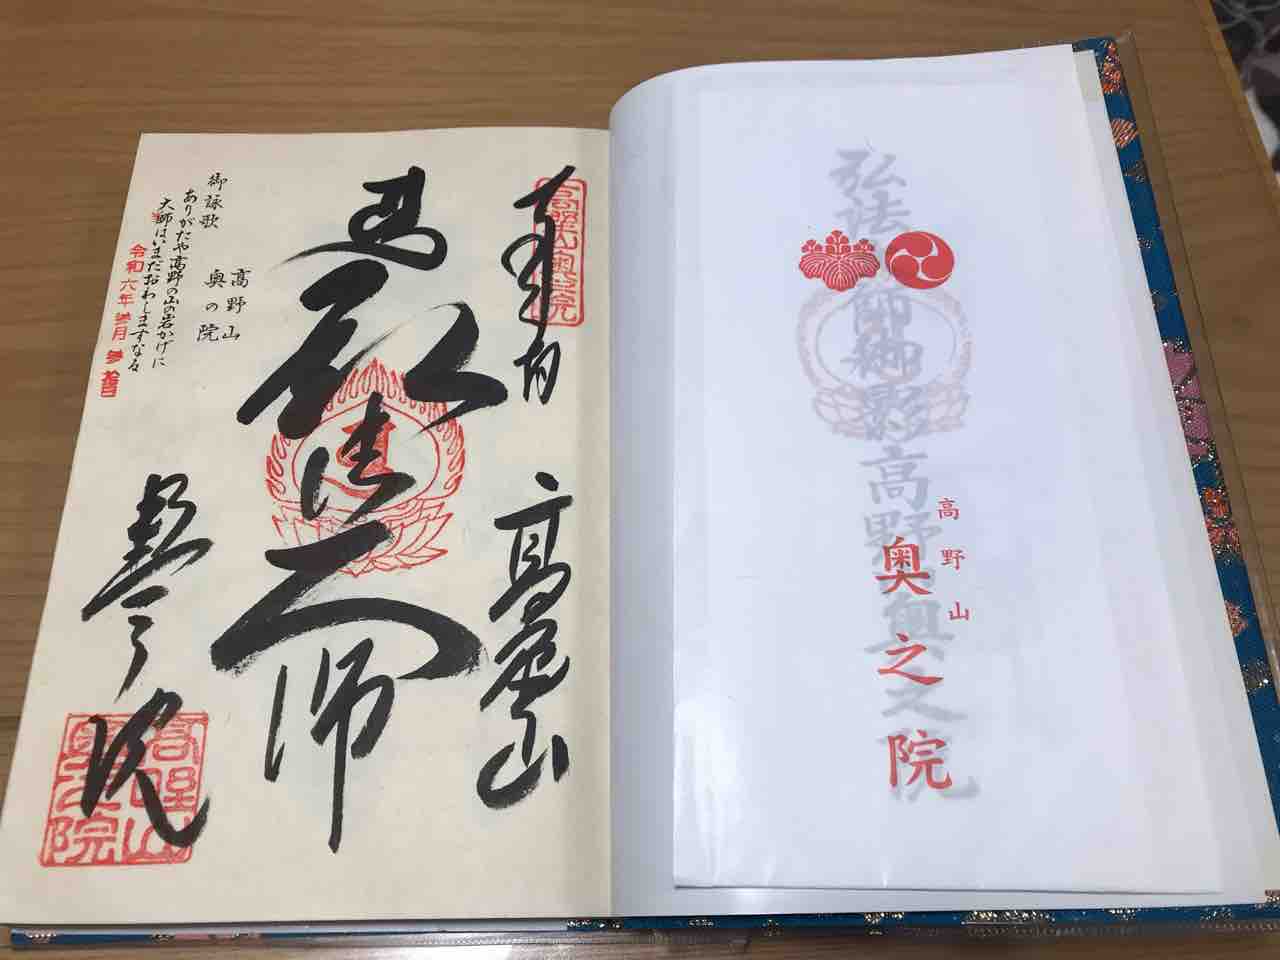 高野山
奥之院
弘法大師御影高野山奥之院
高野山奥之院
高野山
弘法大師
奥之院
高野山奥之院
御詠歌
高野山
奥の院
ありがたや高野の山の岩かげに
大師はいまだおわしますなる
令和六年参月参拾